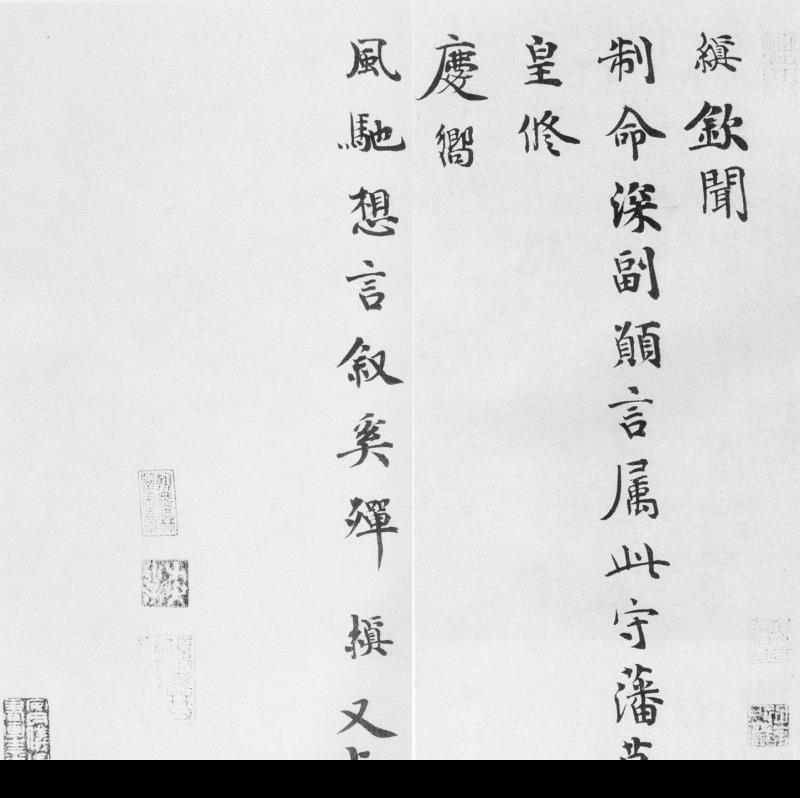 縝欽聞
制命深副願言属此守藩
皇修
慶嚮
風馳想言叙奚殫 縝又